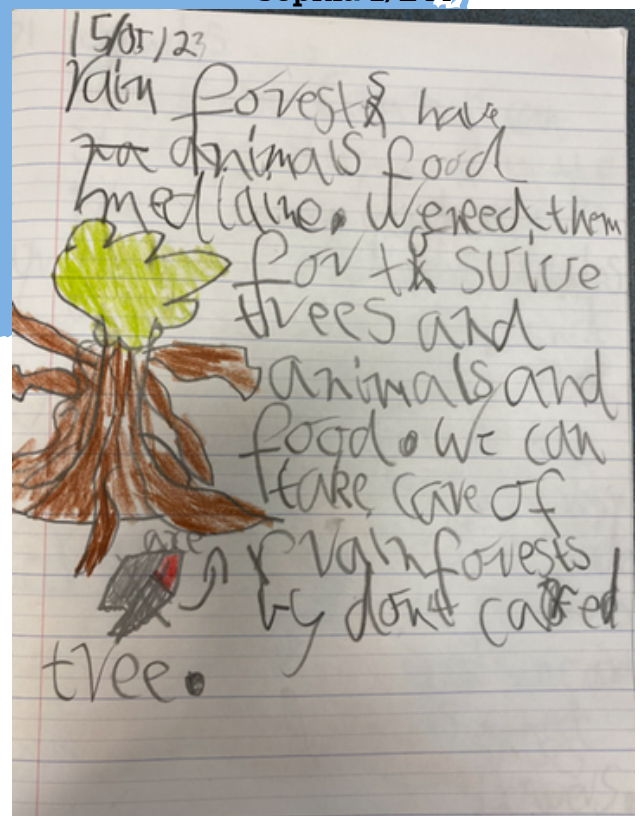 15/05/23
rain forests have
animals food
medlaine. We need them
for to suive
trees and
animals and
food. We can
take care of
are
rainforests
by dont
tree.